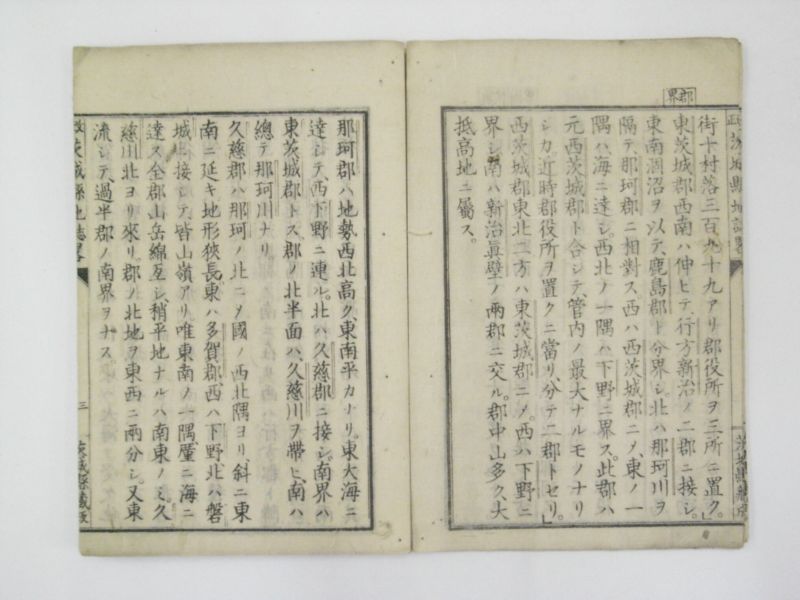 郡界
街十村落三百九十九アリ郡役所ヲ三所ニ置ク」
東茨城郡西南ハ伸ヒテ、行方新治ノ二郡ニ接シ。
東南涸沼ヲ以テ、鹿島郡ト分界シ。北ハ那珂川ヲ
隔テ、那珂郡ニ相對ス西ハ西茨城郡ニメ、東ノ一
隅ハ、海ニ達シ、西北ノ一隅ハ下野ニ界ス。此郡ハ
元西茨城郡ト合シテ、管内ノ最大ナルモノナリ
シカ、近時郡役所ヲ置クニ當リ、分テ二郡トセリ」
西茨城郡東北二方ハ、東茨城郡ニメ。西ハ下野ニ
界シ、南ハ新治眞壁ノ兩郡ニ交ル。郡中山多ク、大
抵高地ニ屬ス。
那珂郡ハ地勢西北高ク、東南平カナリ。東大海ニ
達シテ、西下野ニ連ル。北ハ久慈郡ニ接シ、南界ハ
東茨城郡トス郡ノ北半面ハ、久慈川ヲ帶ヒ、南ハ
總テ那珂川ナリ。
久慈郡ハ那珂ノ北ニメ國ノ西北隅ヨリ、斜ニ東
南ニ延キ地形狹長東ハ多賀郡、西ハ下野北ハ磐
城ニ接シテ、皆山嶺アリ唯東南ノ一隅、僅ニ海ニ
達ス全郡山岳綿亙シ、稍平地ナルハ南東ノミ、久
慈川北ヨリ來リ。郡ノ北地ヲ東西ニ兩分シ。又東
流シテ、過半郡ノ南界ヲナス
茨城縣地誌畧
三
茨城縣藏版